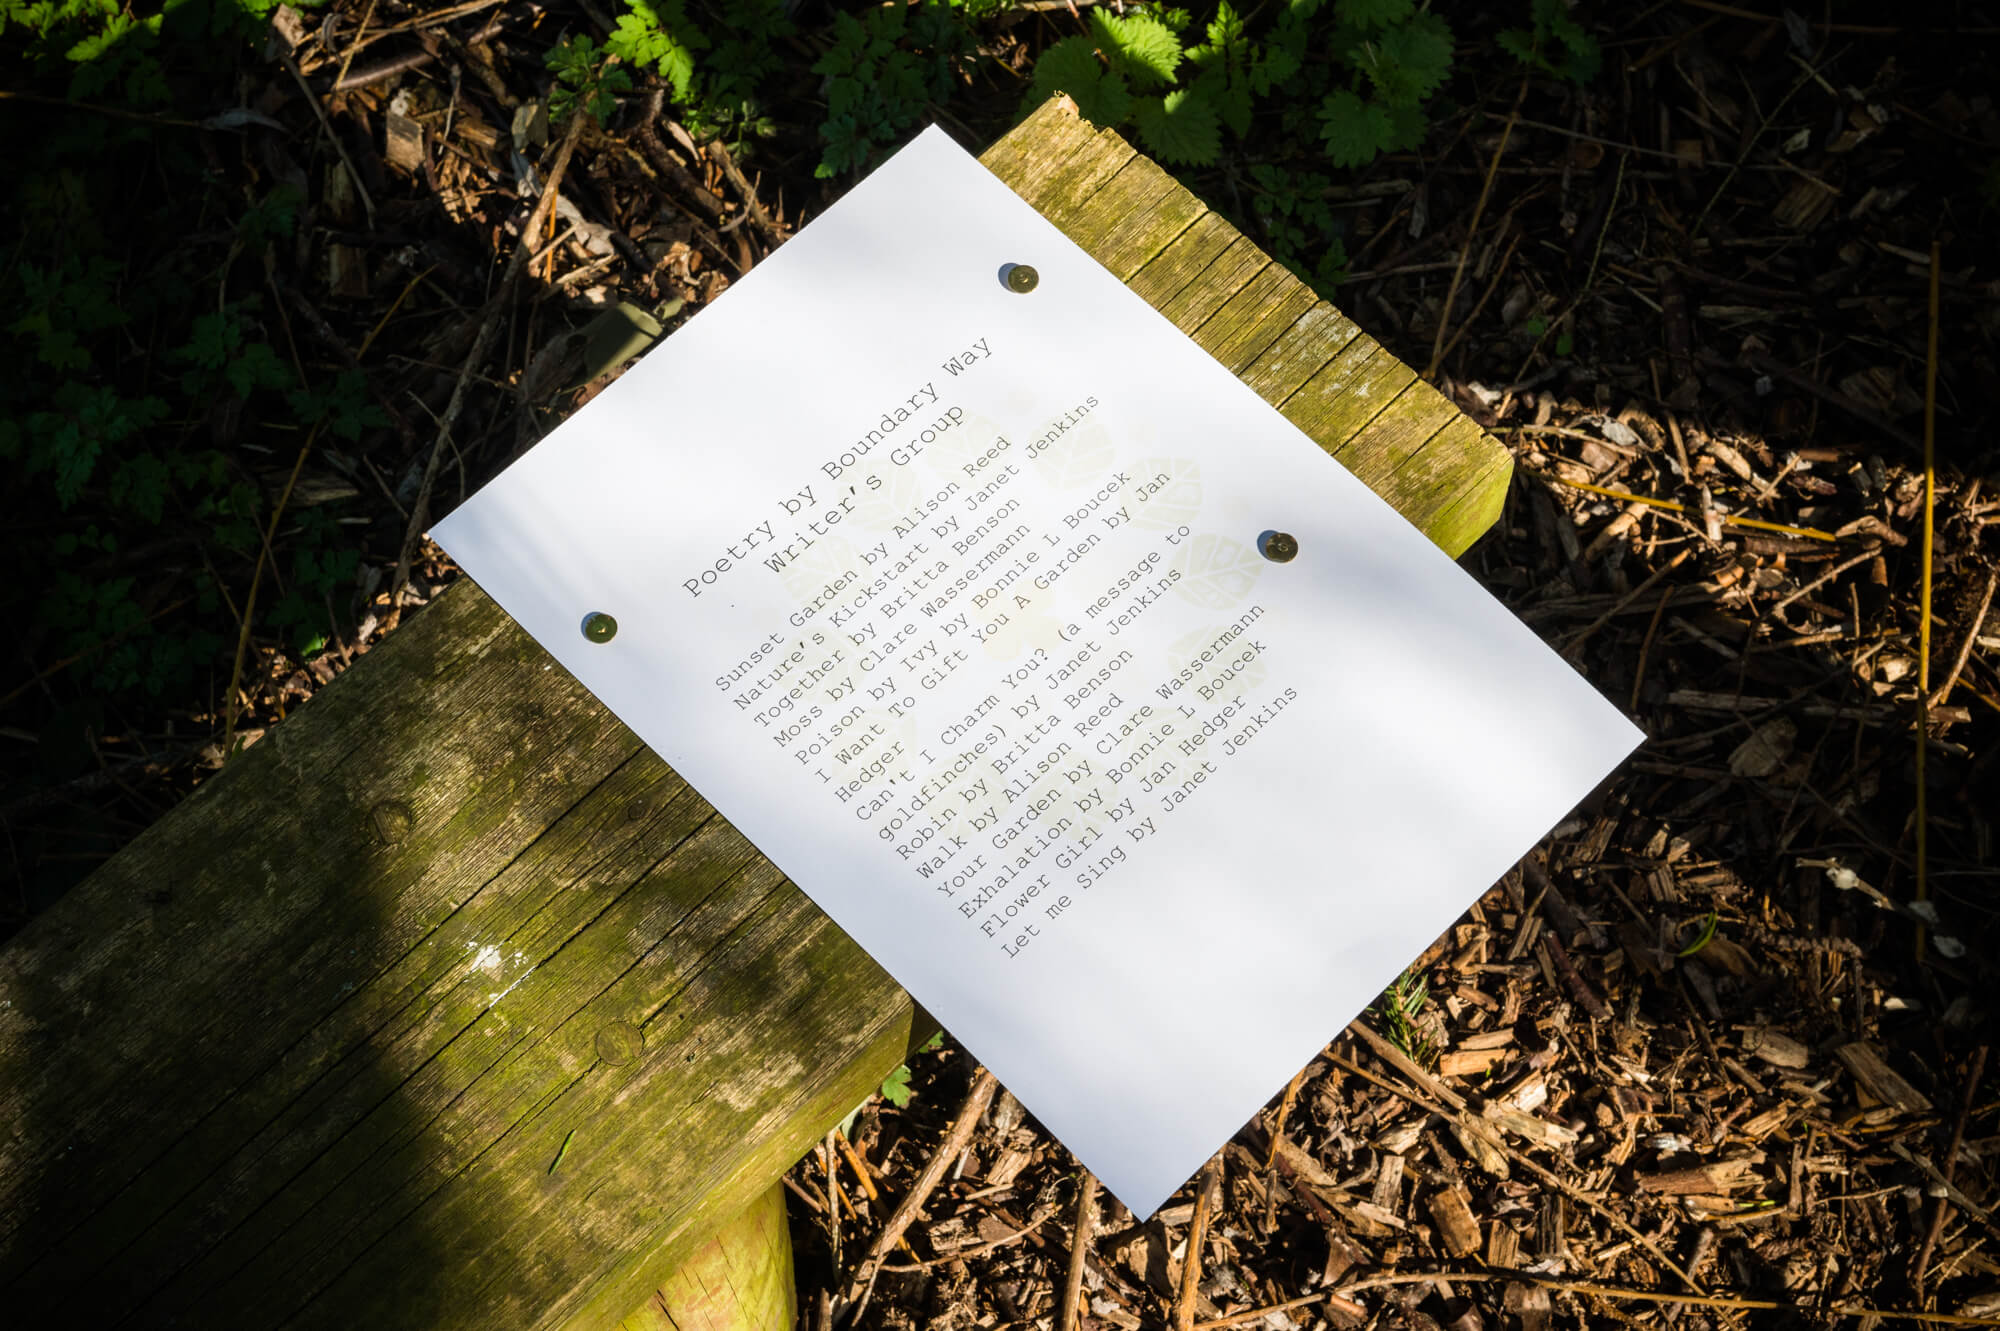 Poetry by Boundary Way
Writer's Group
Sunset Garden by Alison Reed
Nature's Kickstart by Janet Jenkins
Together by Britta Benson
Moss by Clare Wassermann
Poison by Ivy by Bonnie L Boucek
I Want To Gift You A Garden by Jan
Hedger
Can't I Charm You? (a message to
goldfinches) by Janet Jenkins
Robin by Britta Benson
Walk by Alison Reed
Your Garden by Clare Wassermann
Exhalation by Bonnie L Boucek
Flower Girl by Jan Hedger
Let me Sing by Janet Jenkins